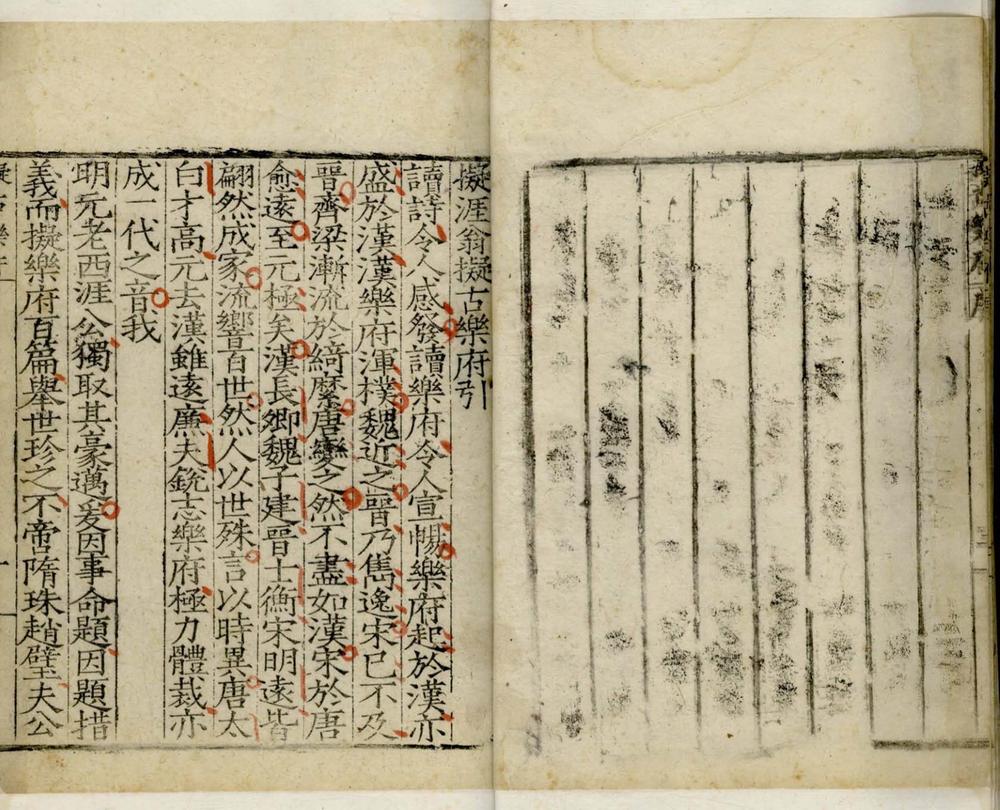 擬涯翁擬古樂府引
讀詩令人感發讀樂府令人宣暢樂府起於漢亦
盛於漢漢樂府渾樸魏近之晉乃雋逸宋已不及
晉齊梁漸流於綺靡唐變之然不盡如漢宋於唐
愈遠至元極矣漢長卿魏子建晉士衡宋明遠皆
翩然成家流響百世然人以世殊言以時異唐太
白才高元去漢雖遠廉夫銳志樂府極力體裁亦
成一代之音我
明元老西涯公獨取其豪邁爰因事命題因題措
義而擬樂府百篇舉世珍之不啻隋珠趙璧夫公